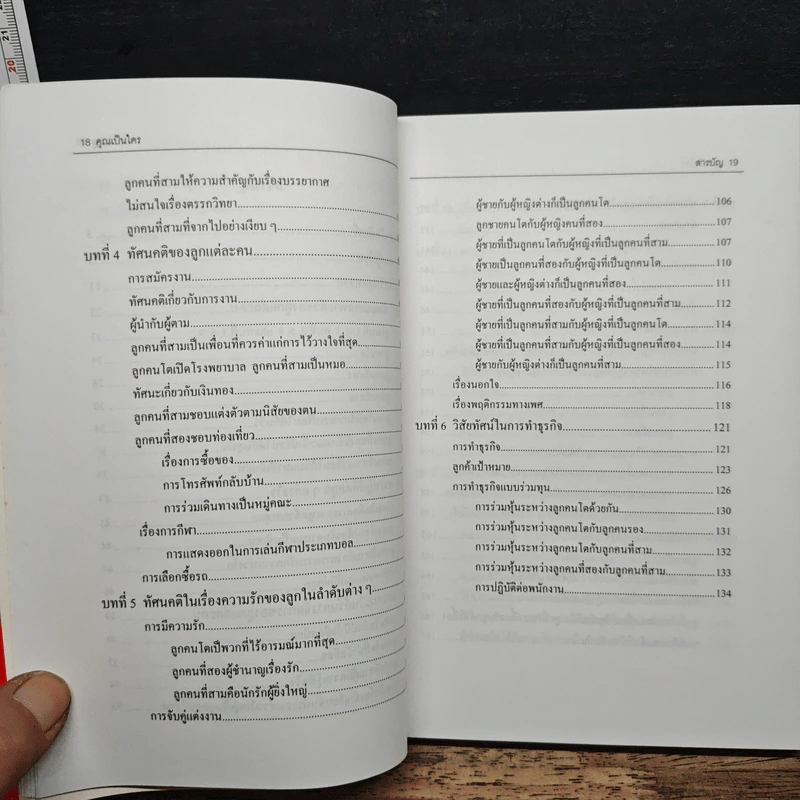 20
21
18 คุณเป็นใคร
ลูกคนที่สามให้ความสำคัญกับเรื่องบรรยากาศ
ไม่สนใจเรื่องตรรกวิทยา
ลูกคนที่สามที่จากไปอย่างเงียบ ๆ
บทที่ 4 ทัศนคติของลูกแต่ละคน
การสมัครงาน
ทัศนคติเกี่ยวกับการงาน
ผู้นำกับผู้ตาม
ลูกคนที่สามเป็นเพื่อนที่ควรค่าแก่การไว้วางใจที่สุด
ลูกคนโตเปิดโรงพยาบาล ลูกคนที่สามเป็นหมอ
ทัศนะเกี่ยวกับเงินทอง
ลูกคนที่สามชอบแต่งตัวตามนิสัยของตน
ลูกคนที่สองชอบท่องเที่ยว
เรื่องการซื้อของ
การโทรศัพท์กลับบ้าน
การร่วมเดินทางเป็นหมู่คณะ
เรื่องการกีฬา
การแสดงออกในการเล่นกีฬาประเภทบอล
การเลือกซื้อรถ
บทที่ 5 ทัศนคติในเรื่องความรักของลูกในลำดับต่าง ๆ
การมีความรัก
ลูกคนโตเป็นพวกที่ไร้อารมณ์มากที่สุด
ลูกคนที่สองผู้ชำนาญเรื่องรัก
ลูกคนที่สามคือนักรักผู้ยิ่งใหญ่
การจับคู่แต่งงาน
สารบัญ 19
ผู้ชายกับผู้หญิงต่างก็เป็นลูกคนโต 106
ลูกชายคนโตกับผู้หญิงคนที่สอง 107
ผู้ชายที่เป็นลูกคนโตกับผู้หญิงที่เป็นลูกคนที่สาม 107
ผู้ชายเป็นลูกคนที่สองกับผู้หญิงที่เป็นลูกคนโต 110
ผู้ชายและผู้หญิงต่างก็เป็นลูกคนที่สอง 111
ผู้ชายที่เป็นลูกคนที่สองกับผู้หญิงที่เป็นลูกคนที่สาม 112
ผู้ชายที่เป็นลูกคนที่สามกับผู้หญิงที่เป็นลูกคนโต 114
ผู้ชายที่เป็นลูกคนที่สามกับผู้หญิงที่เป็นลูกคนที่สอง 114
ผู้ชายกับผู้หญิงต่างก็เป็นลูกคนที่สาม 115
เรื่องนอกใจ 116
เรื่องพฤติกรรมทางเพศ 118
บทที่ 6 วิสัยทัศน์ในการทำธุรกิจ 121
การทำธุรกิจ 121
ลูกค้าเป้าหมาย 123
การทำธุรกิจแบบร่วมทุน 126
การร่วมหุ้นระหว่างลูกคนโตด้วยกัน 130
การร่วมหุ้นระหว่างลูกคนโตกับลูกคนรอง 131
การร่วมหุ้นระหว่างลูกคนโตกับลูกคนที่สาม 132
การร่วมหุ้นระหว่างลูกคนที่สองกับลูกคนที่สาม 133
การปฏิบัติต่อพนักงาน 134